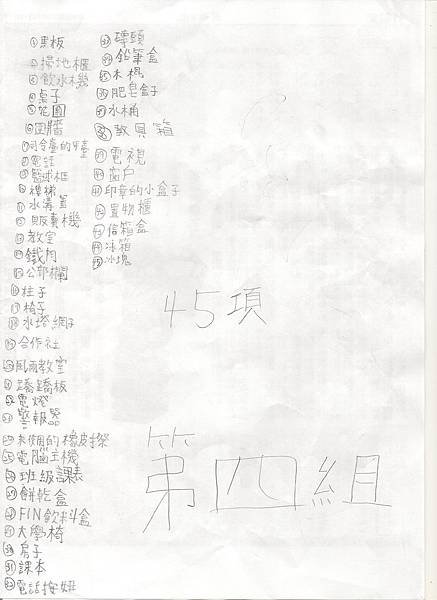 ①黑板
②掃地櫃
③飲水機
④桌子
⑤花圃
⑥圍牆
⑦司令臺的平臺
⑧電話
⑨籃球框
⑩樓梯
⑪水溝蓋
⑫販賣機
⑬教室
⑭鐵門
⑮公布欄
⑯柱子
⑰椅子
⑱水塔網子
⑲合作社
⑳風雨教室
㉑蹺蹺板
㉒電燈
㉓警報器
㉔未使用的橡皮擦
㉕電腦主機
㉖班級課表
㉗餅乾盒
㉘FIN飲料盒
㉙大學椅
㉚房子
㉛課本
㉜電話按鈕
㉝磚頭
㉞鉛筆盒
㉟木棍
㊱肥皂盒子
㊲水桶
㊳教具箱
㊴電視
㊵窗戶
㊶印章的小盒子
㊷置物櫃
㊸信箱盒
㊹冰箱
㊺冰塊
45項
第四組